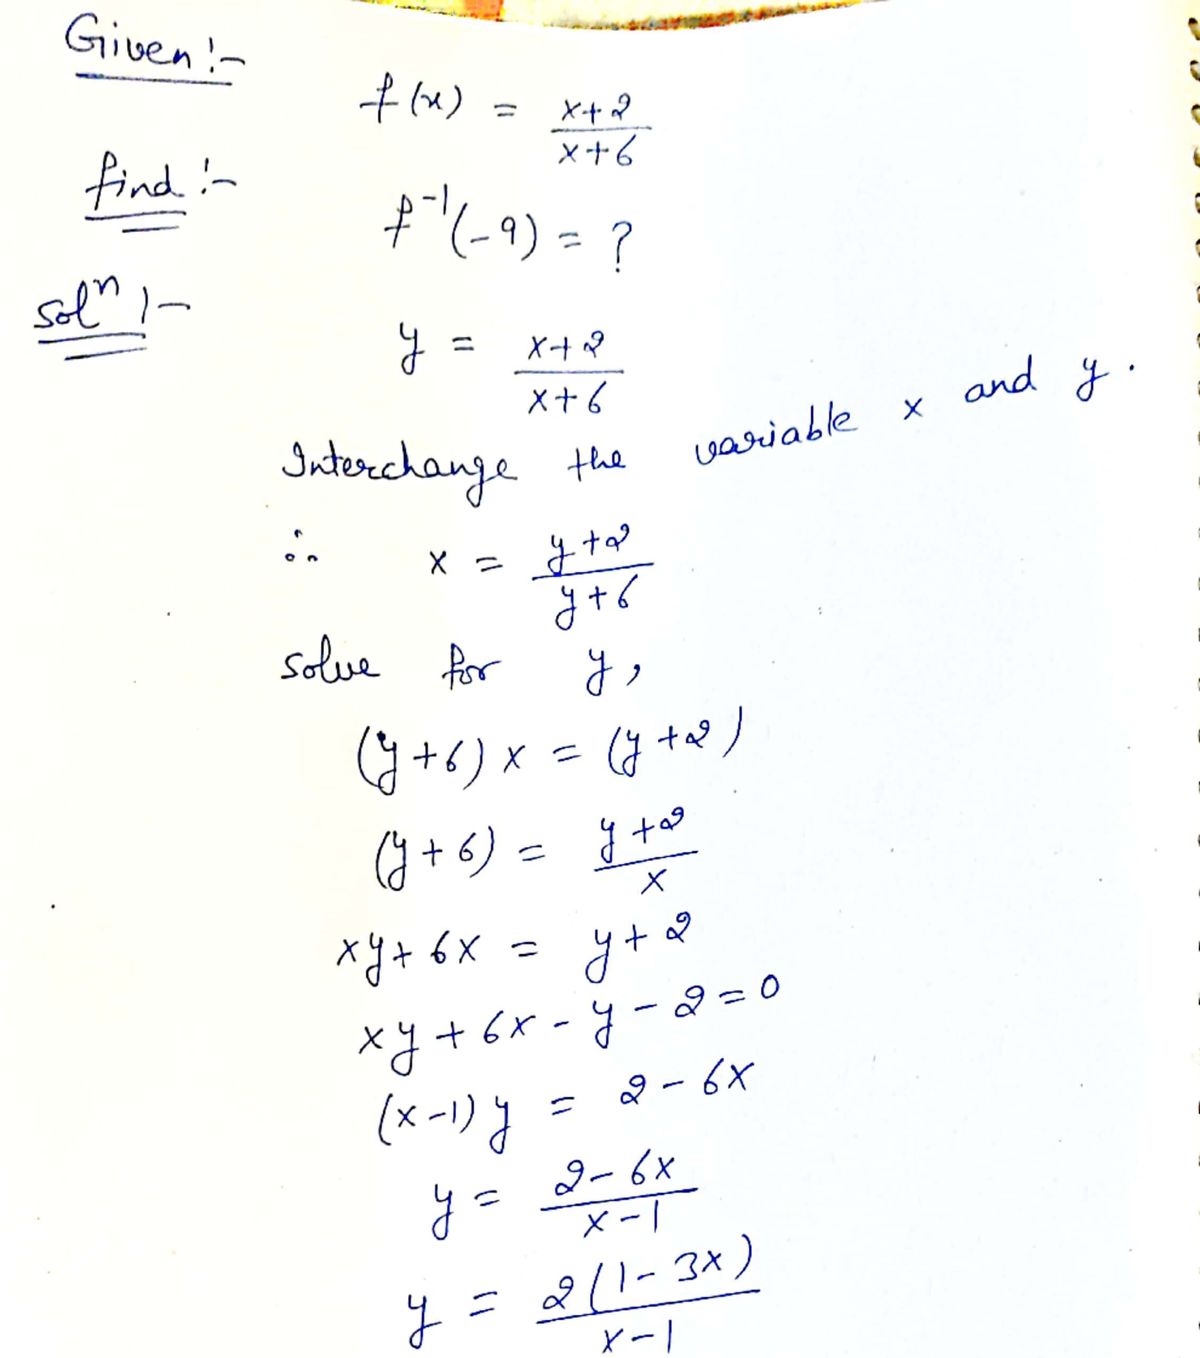 Given :-
f(x) = x+2 / x+6
find :-
f⁻¹(-9) = ?
solⁿ :-
y = x+2 / x+6
Interchange the variable x and y.
∴ x = y+2 / y+6
solve for y,
(y+6) x = (y+2)
(y+6) = y+2 / x
xy + 6x = y+2
xy + 6x - y - 2 = 0
(x-1) y = 2 - 6x
y = 2-6x / x-1
y = 2(1-3x) / x-1